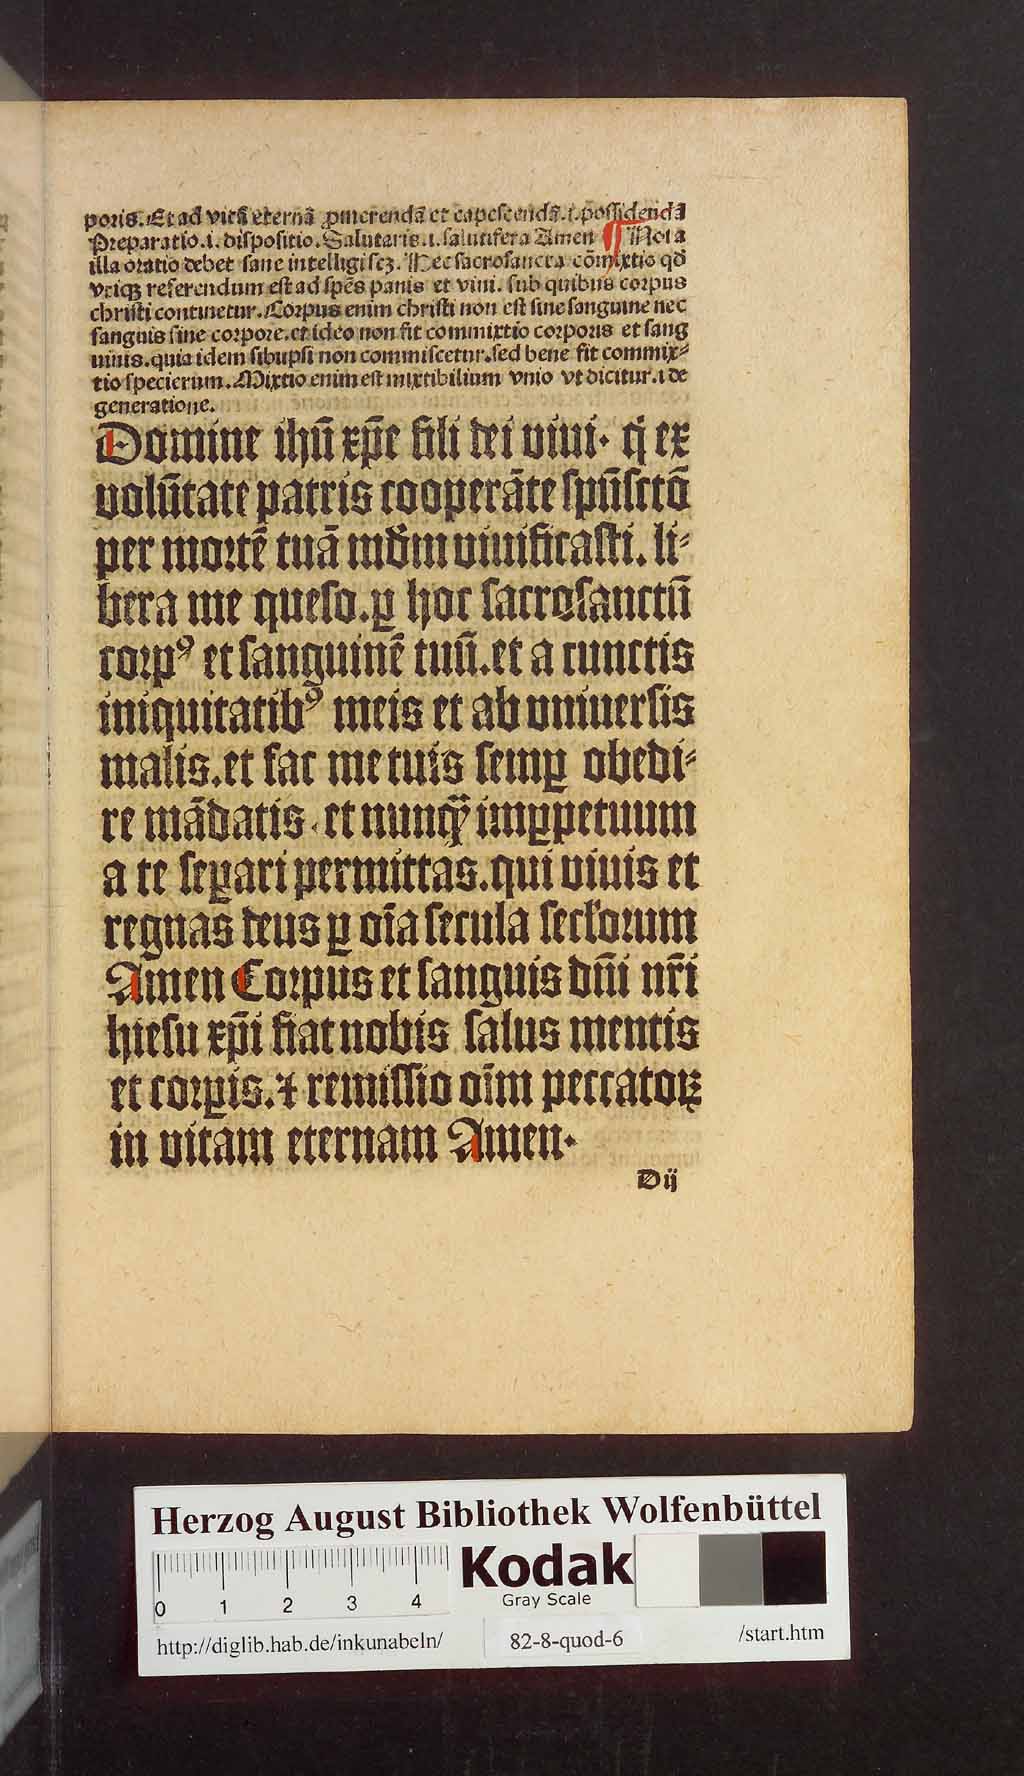 poris. Et ad vitã eternã ꝓmerendã et capescendã .i. possidendã
Preparatio .i. dispositio. Salutaris .i. salutifera Amen ¶ Nota
illa oratio debet sane intelligi scȝ. Hec sacrosancta cõmixtio qd̃
vtiqꝫ referendum est ad spẽs panis et vini. sub quibus corpus
christi continetur. Corpus enim christi non est sine sanguine nec
sanguis sine corpore. et ideo non fit commixtio corporis et sang
uinis. quia idem sibiipsi non commiscetur. sed bene fit commix⸗
tio specierum. Mixtio enim est mixtibilium vnio vt dicitur .i. de
generatione.
Domine ihũ xp̃e fili dei viui. q̇ ex
volũtate patris cooperãte spũsctõ
per mortẽ tuã mũdm viuificasti. li⸗
bera me queso. ꝑ hoc sacrosanctũ
corpꝰ et sanguinẽ tuũ. et a cunctis
iniquitatibꝰ meis et ab vniuersis
malis. et fac me tuis semꝑ obedi⸗
re mãdatis. et nunqȝ̃ imꝑpetuum
a te seꝑari permittas. qui viuis et
regnas deus ꝑ oĩa secula seclorum
Amen Corpus et sanguis dñi nr̃i
hiesu xp̃i fiat nobis salus mentis
et corꝑis. ⁊ remissio oĩm peccatoꝝ
in vitam eternam Amen.
Dij
Herzog August Bibliothek Wolfenbüttel
0 1 2 3 4
Kodak
Gray Scale
http://diglib.hab.de/inkunabeln/ 82-8-quod-6 /start.htm